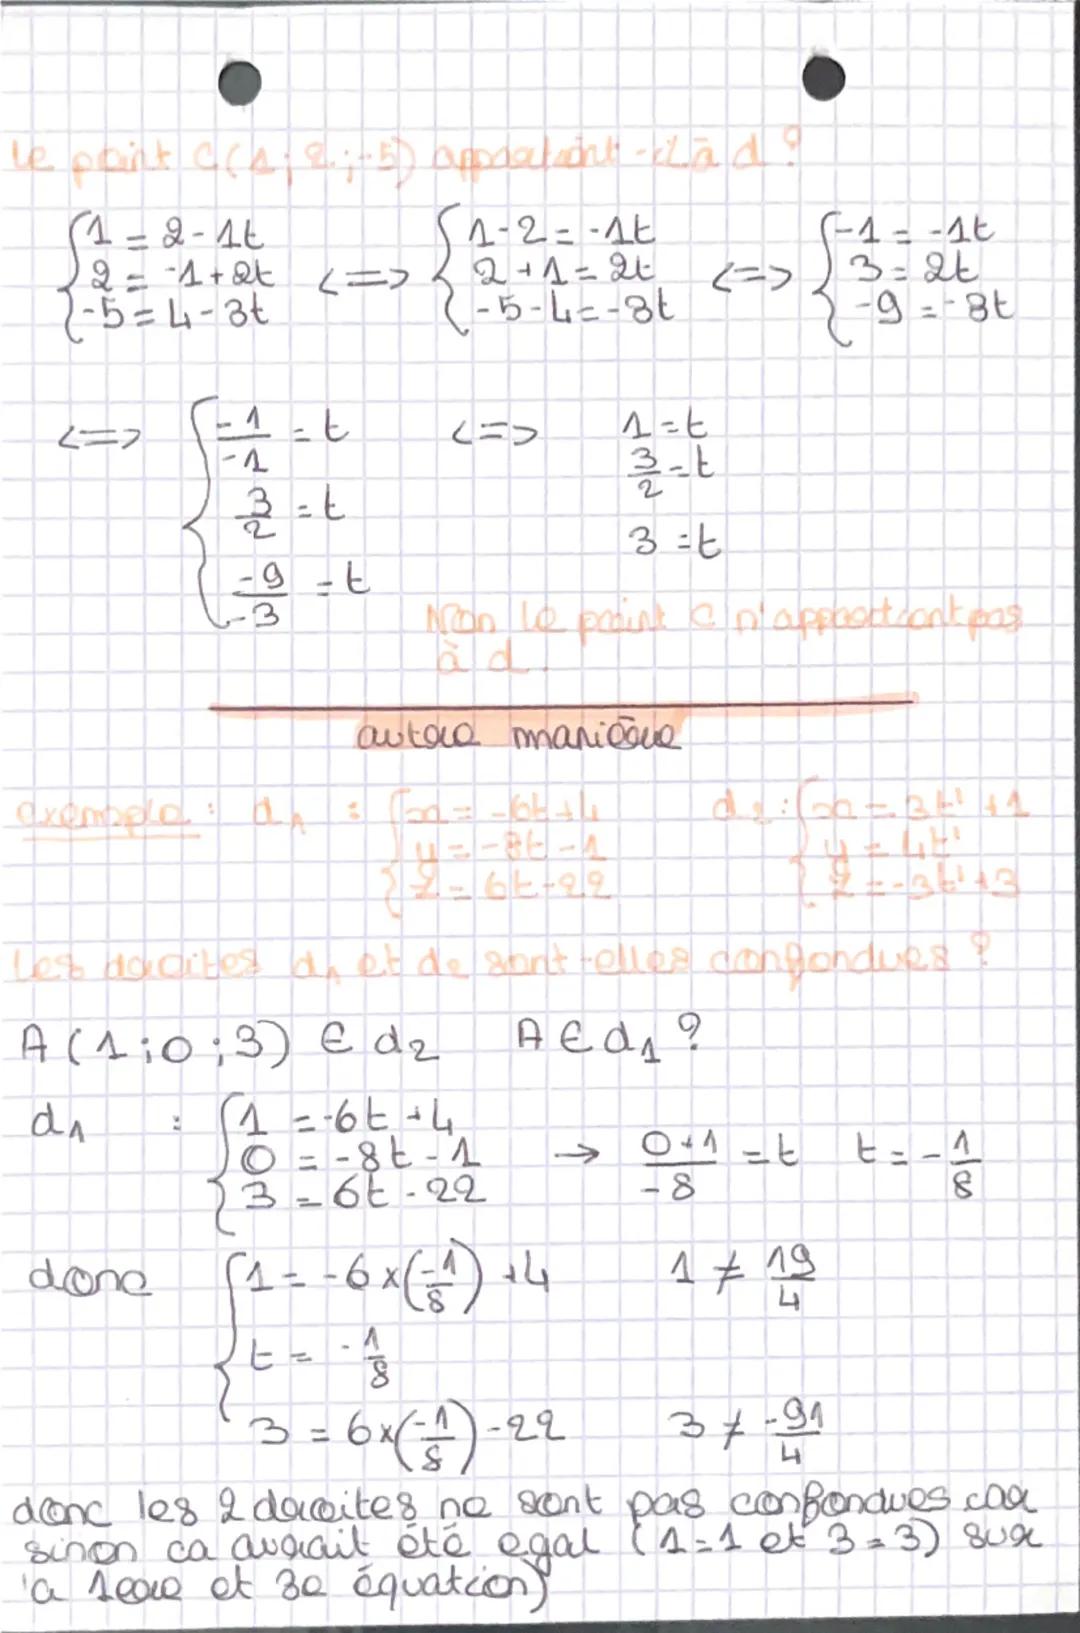 Le point C(1; 2; -5) appartient-il à d ?
{1 = 2 - 1t <=> {1-2 = -1t <=> {-1 = -1t
{2 = -1 + 2t {2+1 = 2t {3 = 2t
{-5 = 4 - 3t {-5-4 = -3t {-9 = -3t
<=> {-1/-1 = t <=> 1 = t
{3/2 = t 3/2 = t
{-9/-3 = t 3 = t
Non le point C n'appartient pas
à d.
autre manière
exemple : d1 : {x = -6t+4 d2 : {x = 3t'+1
{y = -8t-1 {y = 4t'
{z = 6t-22 {z = -3t'+3
Les droites d1 et d2 sont-elles confondues ?
A(1;0;3) ∈ d2 A ∈ d1 ?
d1 : {1 = -6t+4
{0 = -8t-1 → 0+1/-8 = t t = -1/8
{3 = 6t-22
donc {1 = -6×(-1/8)+4 1 ≠ 19/4
{t = -1/8
{3 = 6×(-1/8)-22 3 ≠ -91/4
donc les 2 droites ne sont pas confondues car
sinon ca aurait été egal (1=1 et 3=3) sur
la 1ere et 3e équation)